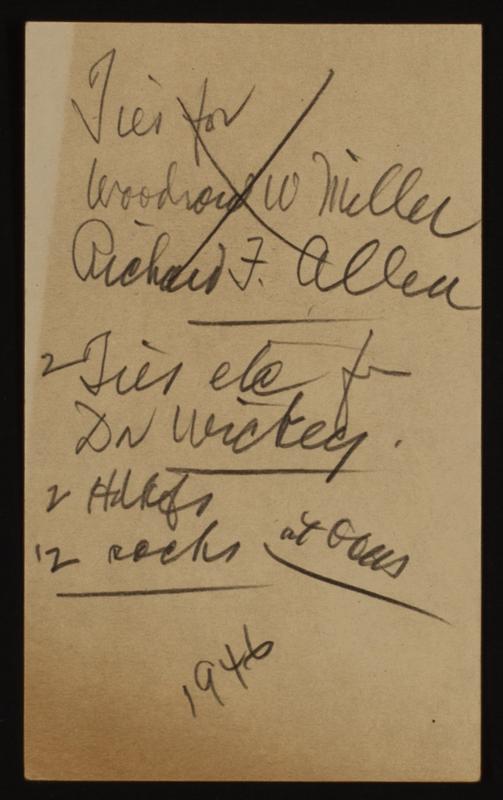 Ties for
Woodrow W Miller
Richard F. Allen
2 Ties etc for
Dr Wickey.
2 Hdkfs
2 socks at Oaks
1946